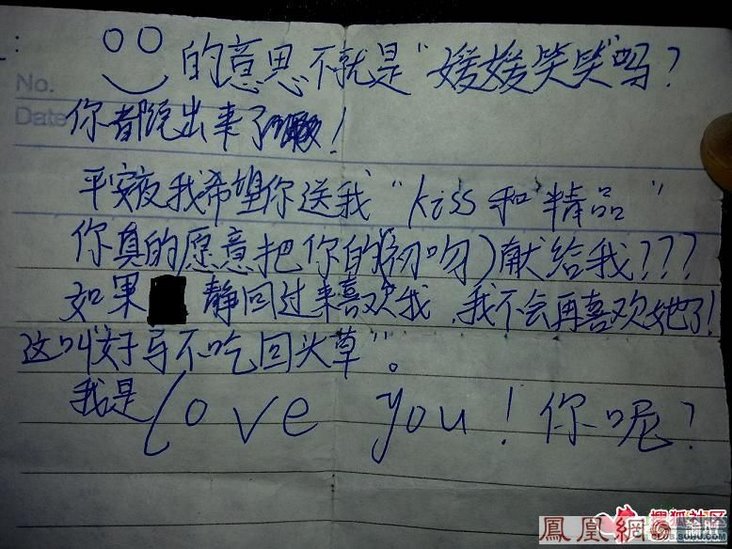 No.
Date
的意思不就是"媛媛笑笑"吗?
你都说出来了!
平安夜我希望你送我"kiss和精品"
你真的愿意把你的(初吻)献给我???
如果 静回过来喜欢我,我不会再喜欢她了!
这叫"好马不吃回头草"。
我是love you!你呢?
搜狐社区
鳳凰網 論壇
SOHU.COM